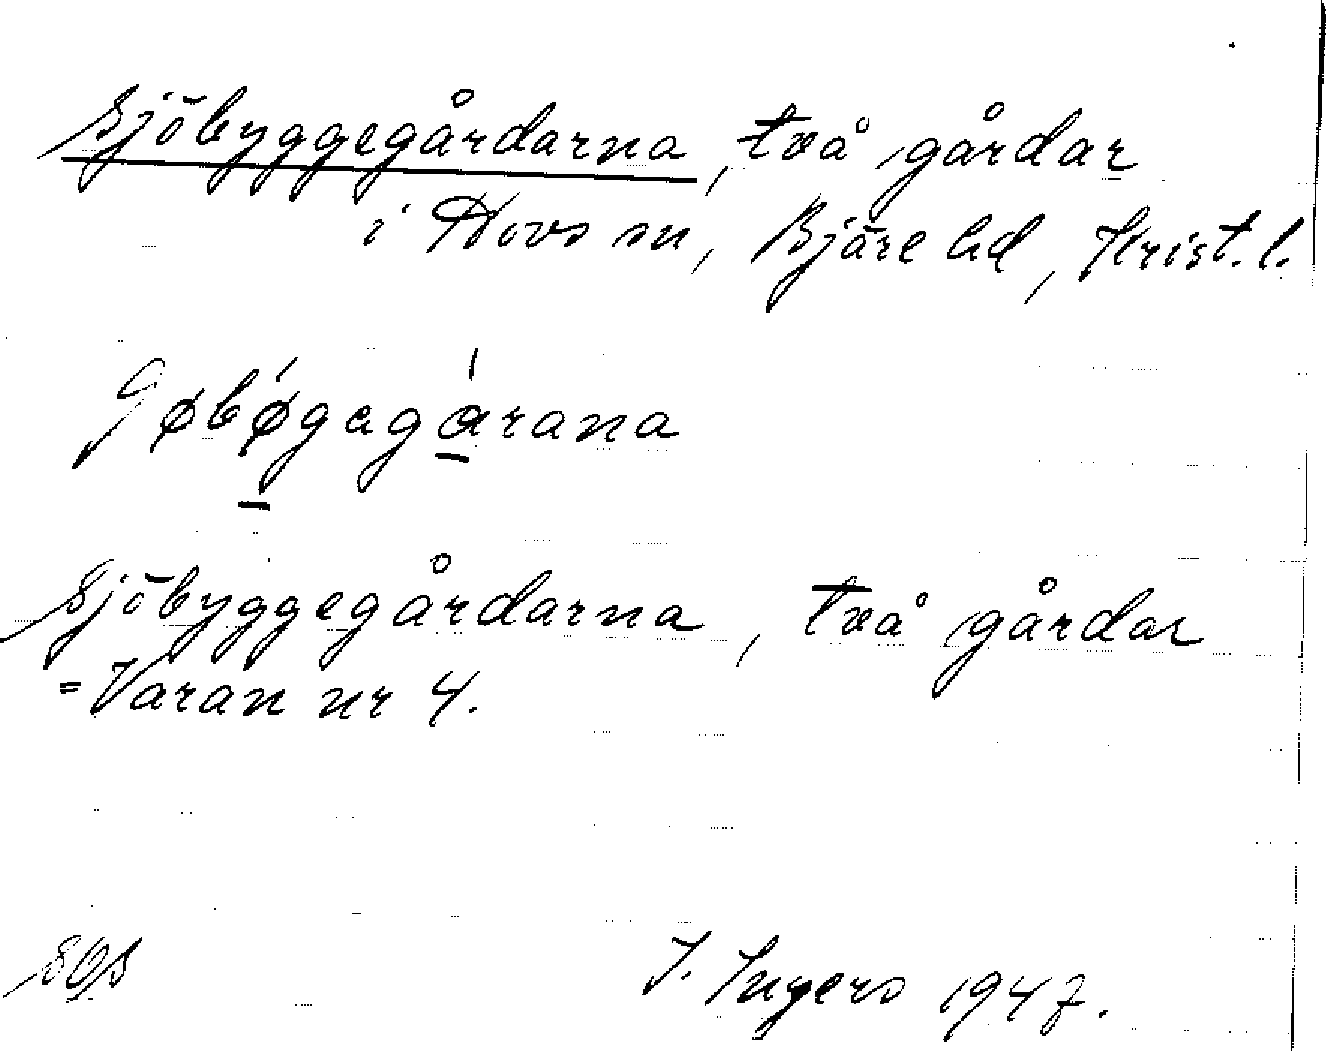 Sjöbyggegårdarna, två gårdar
i Hovs sn, Bjäre hd, Krist. l.
Sjöbyggegårdarna, två gårdar
= Varan nr 4.
SOS
I. Ingers 1947.